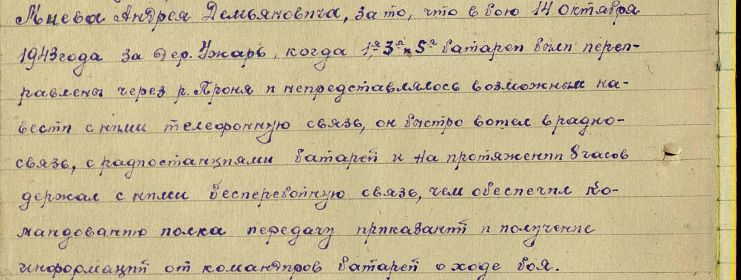 Миева Андрея Демьяновича, за то, что в бою 14 октября
1943 года за дер. Ужарь, когда 1я 3я и 5я батареи были переп-
равлены через р. Проня и непредставлялось возможным на-
вести с ними телефонную связь, он быстро вошел в радио-
связь, с радиостанциями батарей и на протяжении 8 часов
держал с ними бесперебойную связь, чем обеспечил ко-
мандованию полка передачу приказаний и получение
информаций от командиров батарей о ходе боя.